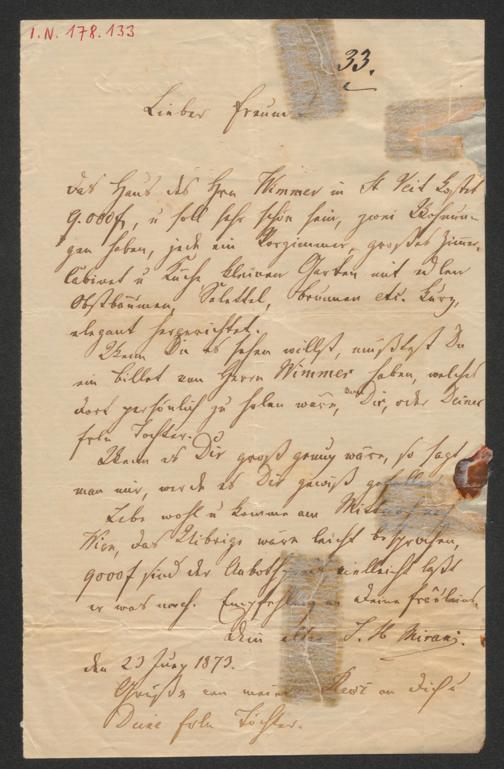 I.N. 178.133
33.
Lieber Freund
das Haus des Hrn Wimmer in St Veit kostet
9.000f, u soll sehr schön sein, zwei Wohnun-
gen haben, jede ein Vorzimmer, großes Zimmer,
Cabinet u Küche kleinen Garten mit edlen
Obstbäumen, Salettel, Brunnen etc. kurz,
elegant hergerichtet.
Wenn Du es sehen willst, müßtest Du
ein Billet von Herrn Wimmer haben, welches
dort persönlich zu holen wäre, Dir, oder Deiner
frln Tochter.
Wenn es Dir groß genug wäre, so sagt
man mir, werde es Dir gewiß
Lebe wohl u komme am
Wien, das Übrige wäre leicht besprochen,
9000f sind der vielleicht laßt
er was nach. Empfehlung an Deine Fräulein
Dein alter J. H Mirani.
den 23 Juny 1873.
Grüße von meiner an Dich u
Deine frln Töchter.